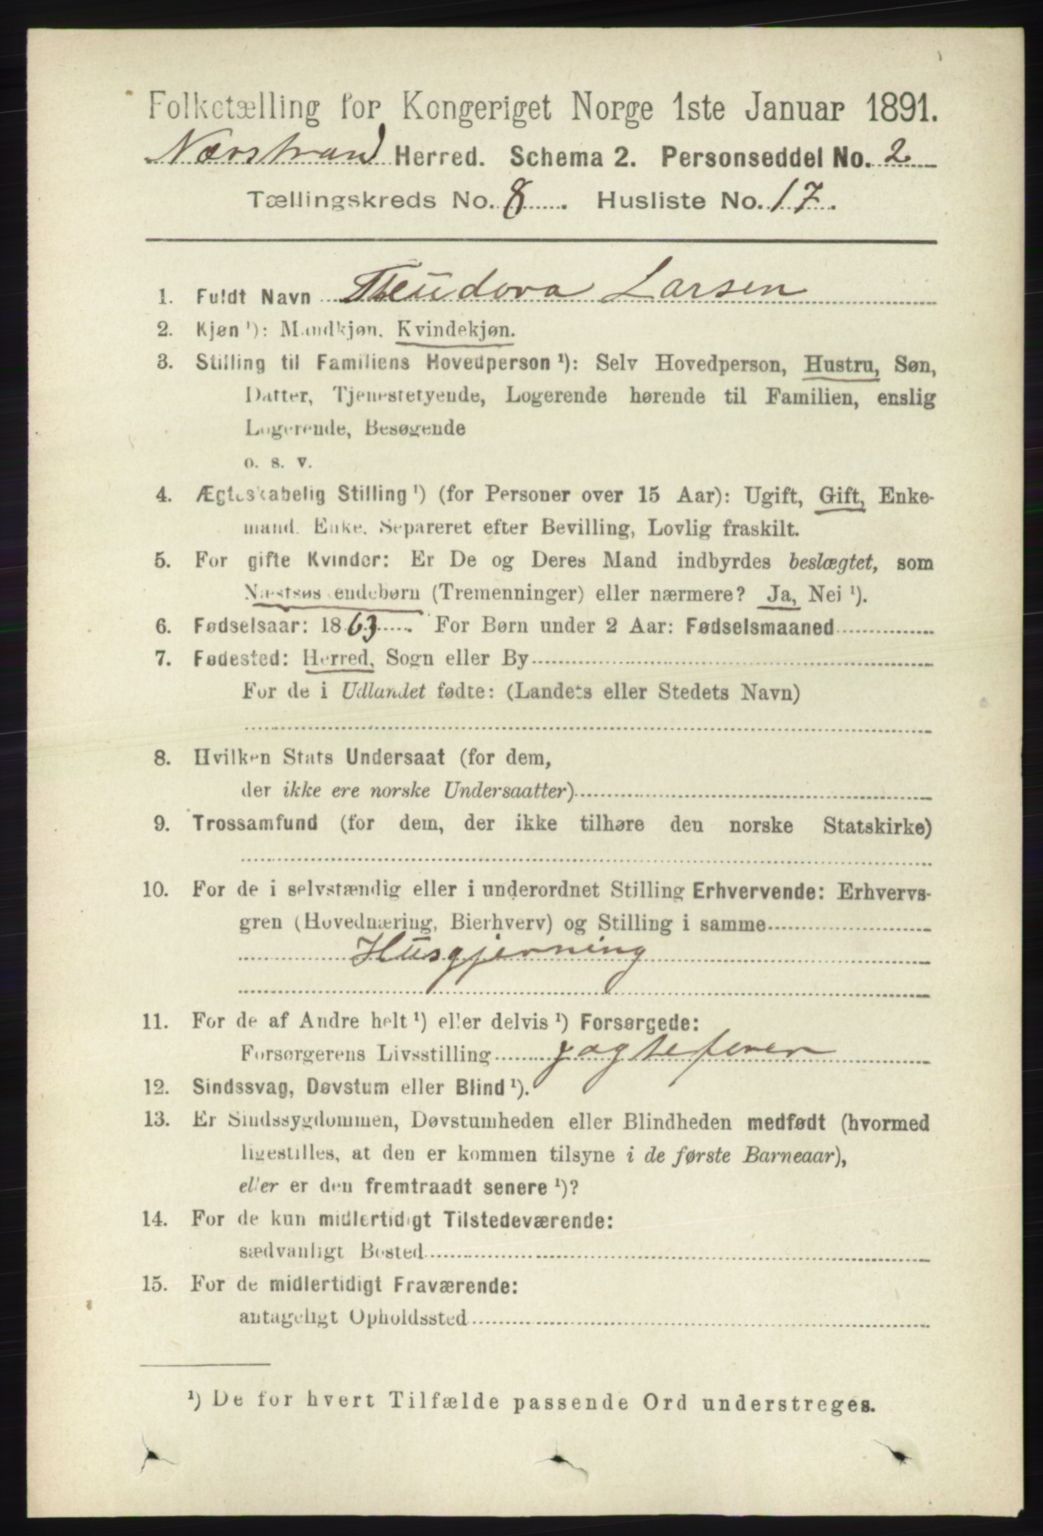 Folketælling for Kongeriget Norge 1ste Januar 1891.
Nærstrand Herred. Schema 2. Personseddel No. 2
Tællingskreds No. 8. Husliste No. 17.
1. Fuldt Navn Theodora Larsen
2. Kjøn ¹): Mandkjøn. Kvindekjøn.
3. Stilling til Familiens Hovedperson ¹): Selv Hovedperson, Hustru, Søn,
Datter, Tjenestetyende, Logerende hørende til Familien, enslig
Logerende, Besøgende
o. s. v.
4. Ægteskabelig Stilling ¹) (for Personer over 15 Aar): Ugift, Gift, Enke-
mand, Enke, Separeret efter Bevilling, Lovlig fraskilt.
5. For gifte Kvinder: Er De og Deres Mand indbyrdes beslægtet, som
Næstsøskendebørn (Tremenninger) eller nærmere? Ja, Nei ¹).
6. Fødselsaar: 1863. For Børn under 2 Aar: Fødselsmaaned
7. Fødested: Herred, Sogn eller By
For de i Udlandet fødte: (Landets eller Stedets Navn)
8. Hvilken Stats Undersaat (for dem,
der ikke ere norske Undersaatter)
9. Trossamfund (for dem, der ikke tilhøre den norske Statskirke)
10. For de i selvstændig eller i underordnet Stilling Erhvervende: Erhvervs-
gren (Hovednæring, Bierhverv) og Stilling i samme
Husgjerning
11. For de af Andre helt ¹) eller delvis ¹) Forsørgede:
Forsørgerens Livsstilling
12. Sindssvag, Døvstum eller Blind ¹).
13. Er Sindssygdommen, Døvstumheden eller Blindheden medfødt (hvormed
ligestilles, at den er kommen tilsyne i de første Barneaar),
eller er den fremtraadt senere ¹)?
14. For de kun midlertidigt Tilstedeværende:
sædvanligt Bosted
15. For de midlertidigt Fraværende:
antageligt Opholdssted
¹) De for hvert Tilfælde passende Ord understreges.